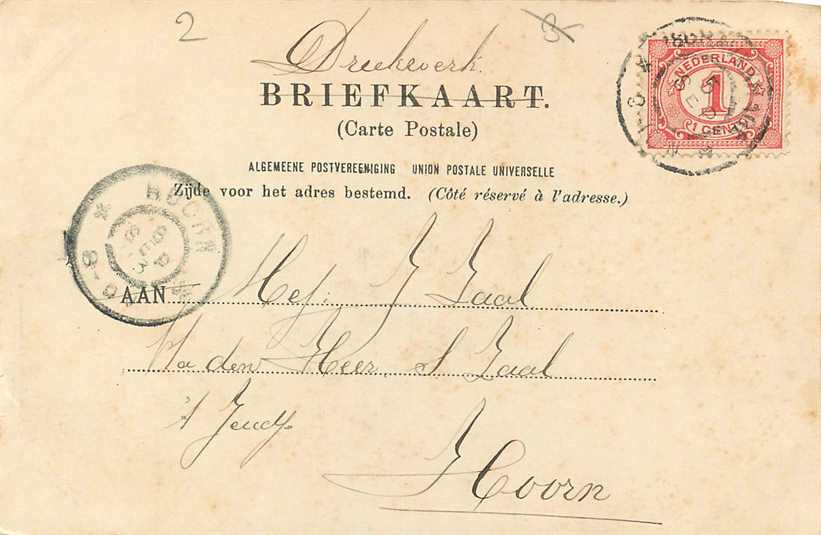 2
Drukwerk
BRIEFKAART.
(Carte Postale)
ALGEMEENE POSTVEREENIGING UNION POSTALE UNIVERSELLE
Zijde voor het adres bestemd. (Côté réservé à l'adresse.)
NEDERLAND
1
1 CENT
HOORN
AAN Mej: J Zaal
den Heer Zaal
Hoorn